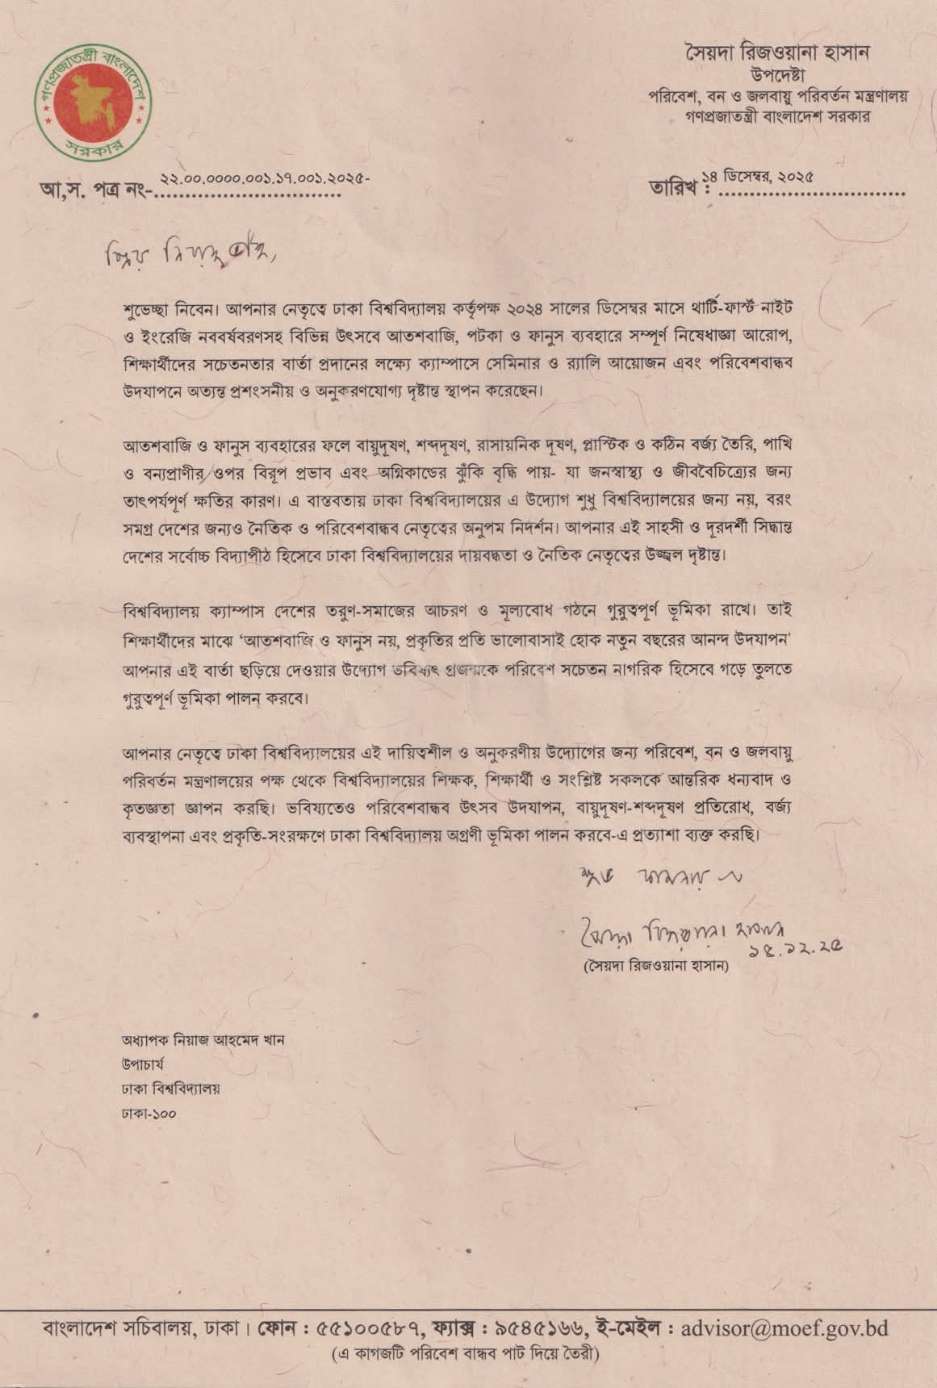 গণপ্রজাতন্ত্রী বাংলাদেশ
সরকার
সৈয়দা রিজওয়ানা হাসান
উপদেষ্টা
পরিবেশ, বন ও জলবায়ু পরিবর্তন মন্ত্রণালয়
গণপ্রজাতন্ত্রী বাংলাদেশ সরকার
আ,স. পত্র নং-২২.০০.০০০০.০০১.১৭.০০১.২০২৫-
তারিখ : ১৪ ডিসেম্বর, ২০২৫
প্রিয় নিয়াজ ভাই,
শুভেচ্ছা নিবেন। আপনার নেতৃত্বে ঢাকা বিশ্ববিদ্যালয় কর্তৃপক্ষ ২০২৪ সালের ডিসেম্বর মাসে থার্টি-ফার্স্ট নাইট
ও ইংরেজি নববর্ষবরণসহ বিভিন্ন উৎসবে আতশবাজি, পটকা ও ফানুস ব্যবহারে সম্পূর্ণ নিষেধাজ্ঞা আরোপ,
শিক্ষার্থীদের সচেতনতার বার্তা প্রদানের লক্ষ্যে ক্যাম্পাসে সেমিনার ও র‍্যালি আয়োজন এবং পরিবেশবান্ধব
উদযাপনে অত্যন্ত প্রশংসনীয় ও অনুকরণযোগ্য দৃষ্টান্ত স্থাপন করেছেন।
আতশবাজি ও ফানুস ব্যবহারের ফলে বায়ুদূষণ, শব্দদূষণ, রাসায়নিক দূষণ, প্লাস্টিক ও কঠিন বর্জ্য তৈরি, পাখি
ও বন্যপ্রাণীর ওপর বিরূপ প্রভাব এবং অগ্নিকান্ডের ঝুঁকি বৃদ্ধি পায়- যা জনস্বাস্থ্য ও জীববৈচিত্র্যের জন্য
তাৎপর্যপূর্ণ ক্ষতির কারণ। এ বাস্তবতায় ঢাকা বিশ্ববিদ্যালয়ের এ উদ্যোগ শুধু বিশ্ববিদ্যালয়ের জন্য নয়, বরং
সমগ্র দেশের জন্যও নৈতিক ও পরিবেশবান্ধব নেতৃত্বের অনুপম নিদর্শন। আপনার এই সাহসী ও দূরদর্শী সিদ্ধান্ত
দেশের সর্বোচ্চ বিদ্যাপীঠ হিসেবে ঢাকা বিশ্ববিদ্যালয়ের দায়বদ্ধতা ও নৈতিক নেতৃত্বের উজ্জ্বল দৃষ্টান্ত।
বিশ্ববিদ্যালয় ক্যাম্পাস দেশের তরুণ-সমাজের আচরণ ও মূল্যবোধ গঠনে গুরুত্বপূর্ণ ভূমিকা রাখে। তাই
শিক্ষার্থীদের মাঝে ‘আতশবাজি ও ফানুস নয়, প্রকৃতির প্রতি ভালোবাসাই হোক নতুন বছরের আনন্দ উদযাপন’
আপনার এই বার্তা ছড়িয়ে দেওয়ার উদ্যোগ ভবিষ্যৎ প্রজন্মকে পরিবেশ সচেতন নাগরিক হিসেবে গড়ে তুলতে
গুরুত্বপূর্ণ ভূমিকা পালন করবে।
আপনার নেতৃত্বে ঢাকা বিশ্ববিদ্যালয়ের এই দায়িত্বশীল ও অনুকরণীয় উদ্যোগের জন্য পরিবেশ, বন ও জলবায়ু
পরিবর্তন মন্ত্রণালয়ের পক্ষ থেকে বিশ্ববিদ্যালয়ের শিক্ষক, শিক্ষার্থী ও সংশ্লিষ্ট সকলকে আন্তরিক ধন্যবাদ ও
কৃতজ্ঞতা জ্ঞাপন করছি। ভবিষ্যতেও পরিবেশবান্ধব উৎসব উদযাপন, বায়ুদূষণ-শব্দদূষণ প্রতিরোধ, বর্জ্য
ব্যবস্থাপনা এবং প্রকৃতি-সংরক্ষণে ঢাকা বিশ্ববিদ্যালয় অগ্রণী ভূমিকা পালন করবে-এ প্রত্যাশা ব্যক্ত করছি।
শুভ কামনায়
সৈয়দা রিজওয়ানা হাসান
১৫.১২.২৫
(সৈয়দা রিজওয়ানা হাসান)
অধ্যাপক নিয়াজ আহমেদ খান
উপাচার্য
ঢাকা বিশ্ববিদ্যালয়
ঢাকা-১০০
বাংলাদেশ সচিবালয়, ঢাকা। ফোন : ৫৫১০০৫৮৭, ফ্যাক্স : ৯৫৪৫১৬৬, ই-মেইল : advisor@moef.gov.bd
(এ কাগজটি পরিবেশ বান্ধব পাট দিয়ে তৈরী)